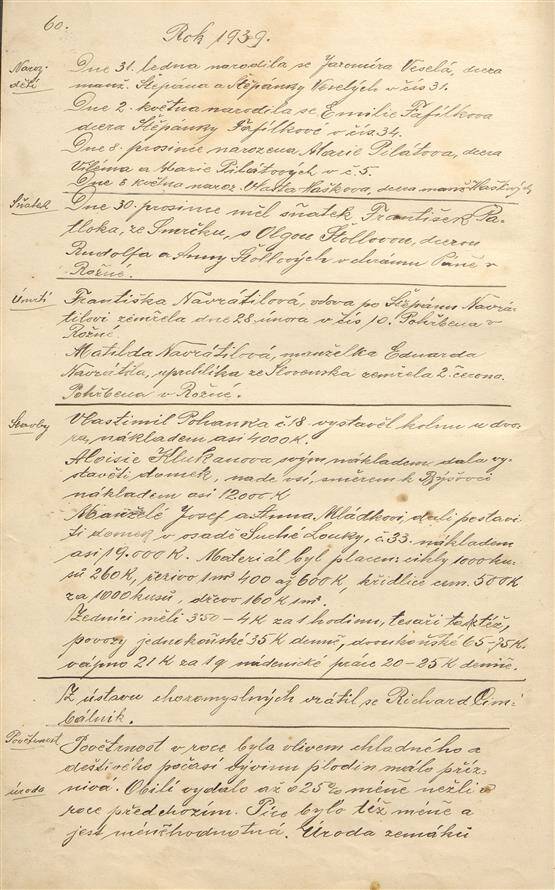 60.
Rok 1939.
Naroz. děti
Dne 31. ledna narodila se Jaromíra Veselá, dcera
manž. Štěpána a Štěpánky Veselých v čís 31.
Dne 2. května narodila se Emilie Fafílkova
dcera Štěpánky Fafílkové v čís. 34.
Dne 8. prosince narozena Marie Pilátova, dcera
Viléma a Marie Pilátových v č. 5.
Dne 8 května naroz. Vlasta Vaškova, dcera manž Vaškových
Sňatek
Dne 30. prosince měl sňatek František Pa-
tloka, ze Smrčku, s Olgou Štollovou, dcerou
Rudolfa a Anny Štollových v chrámu Páně v
Rožné.
Úmrtí
Františka Navrátilová, vdova po Štěpánu Navrá-
tilovi zemřela dne 28. února v čís 10. Pohřbena v
Rožné.
Matilda Navrátilová, manželka Eduarda
Navrátila, uprchlíka ze Slovenska zemřela 2. června.
Pohřbena v Rožné.
Stavby
Vlastimil Pohanka č. 18 vystavěl kolnu u dvo-
ra, nákladem asi 4000 K.
Aloisie Klukanova svým nákladem dala vy-
stavěti domek, nade vsí, směrem k
nákladem asi 12.000 K
Manželé Josef a Anna Mládkovi, dali postavi-
ti domek v osadě Suché Louky, č. 33. nákladem
asi 19.000 K. Materiál byl placen: cihly 1000 ku-
sů 260 K, řezivo 1m³ 400 až 600 K, křidlice cem. 580 K
za 1000 kusů, dřevo 160 K 1m³.
Zedníci měli 3·50 - 4 K za 1 hodinu, tesaři taktéž,
povozy jednokoňské 35 K denně, dvoukoňské 65-75 K.
vápno 21 K za 1 q nádenické práce 20-25 K denně.
Z ústavu choromyslných vrátil se Richard Cim-
bálník.
Povětrnost
Povětrnost v roce byla vlivem chladného a
deštivého počasí vývinu plodin málo příz-
úroda
nivá. Obilí vydalo až o 25% méně nežli v
roce předchozím. Píce bylo též méně a
jest méněhodnotná. Úroda zemáků